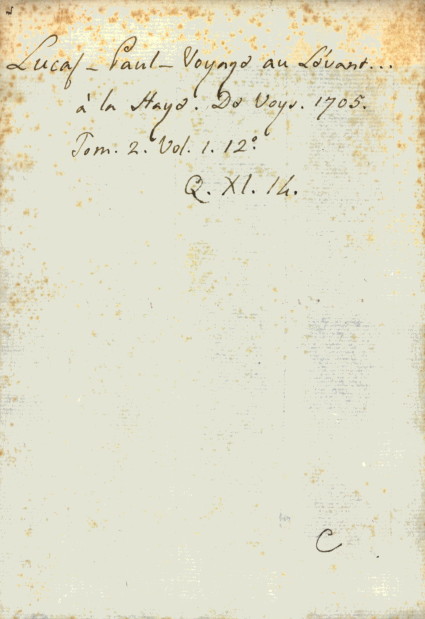 Lucas – Paul – Voyage au Lévant...
à la Haye. De Voys. 1705.
Tom. 2. Vol. 1. 12º
Q. XI. 14.
C